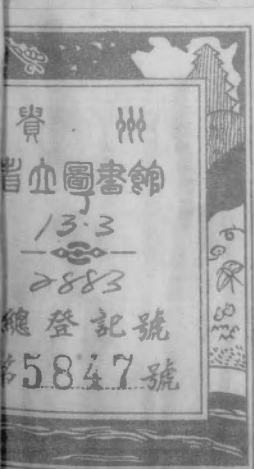 貴州
省立圖書館
J
13.3
2883
總登記號
第5847號